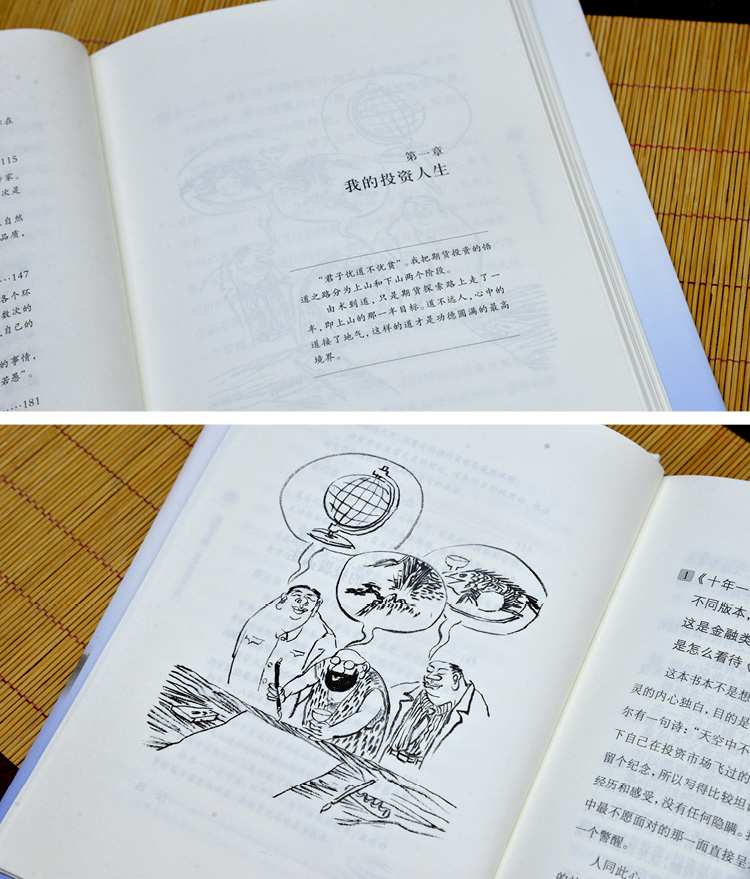 在
115
家。
次是
自然
品质，
147
各个环
数次的
自己的
的事情，
若愚”。
……181
第一章
我的投资人生
“君子忧道不忧贫”。我把期货投资的悟
道之路分为上山和下山两个阶段。
由术到道，只是期货探索路上走了一
半，即上山的那一半目标。道不远人，心中的
道接了地气，这样的道才是功德圆满的最高
境界。
1 《十年一
不同版本，
这是金融类
是怎么看待《
这本书本不是想
灵的内心独白，目的是
尔有一句诗：“天空中不
下自己在投资市场飞过的
留个纪念，所以写得比较坦
经历和感受，没有任何隐瞒。
中最不愿面对的那一面直接呈
一个警醒。
人同此心